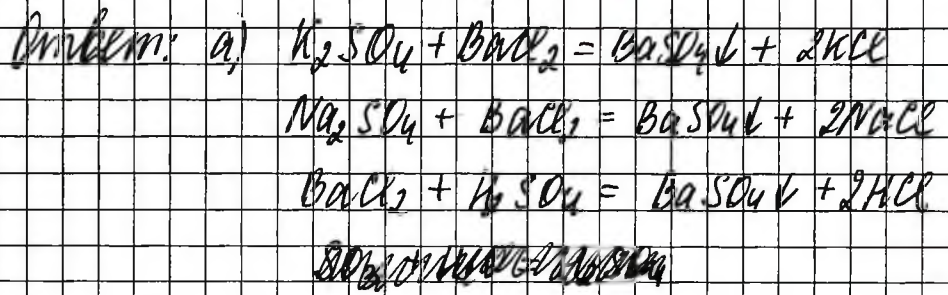 Ответ: а) K₂SO₄ + BaCl₂ = BaSO₄↓ + 2KCl
Na₂SO₄ + BaCl₂ = BaSO₄↓ + 2NaCl
BaCl₂ + H₂SO₄ = BaSO₄↓ + 2HCl